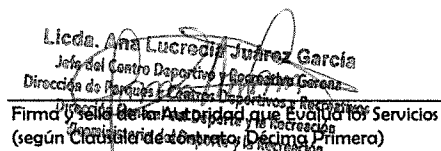 Licda. Ana Lucrecia Juárez García
Jefe del Centro Deportivo y Recreativo Gerona
Dirección de Parques y Centros Deportivos y Recreativos
Dirección del Deporte y la Recreación
Viceministerio del Deporte y la Recreación
Firma y sello de la Autoridad que Evalúa los Servicios
(según Clausula de contrato; Décima Primera)